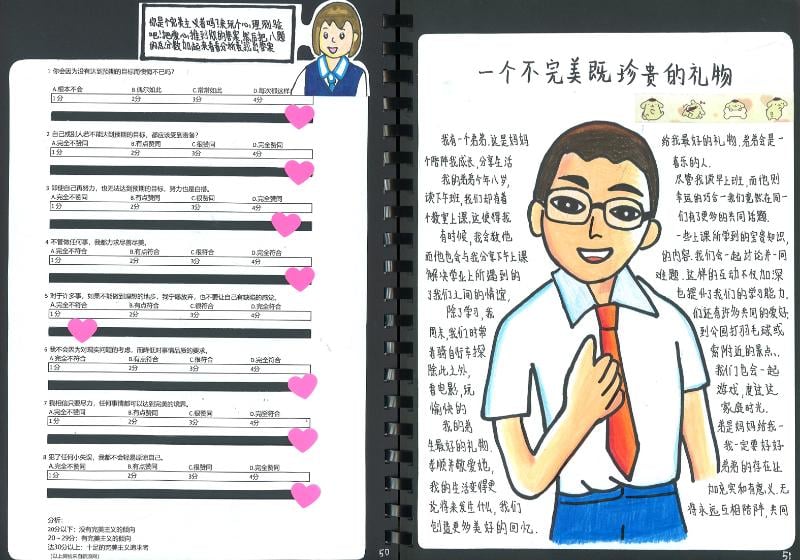 你是个完美主义者吗?来玩个心理测验
吧!把爱心推到你的答案,然后把八题
的区分数加起来看分析查找答案
1 你会因为没有达到预期的目标而懊恼不已吗?
A.根本不会 B.偶尔如此 C.常常如此 D.每次都这样
1分 2分 3分 4分
2 自己或别人若不能达到预期的目标,都应该受到责备?
A.完全不赞同 B.有点赞同 C.很赞同 D.完全赞同
1分 2分 3分 4分
3 即使自己再努力,也无法达到预期的目标,努力也是白搭。
A.完全不赞同 B.有点赞同 C.很赞同 D.完全赞同
1分 2分 3分 4分
4 不管做任何事,我都力求尽善尽美。
A.完全不符合 B.有点符合 C.很符合 D.完全符合
1分 2分 3分 4分
5 对于许多事,如果不能做到理想的地步,我宁愿放弃,也不要让自己有缺陷的感觉。
A.完全不符合 B.有点符合 C.很符合 D.完全符合
1分 2分 3分 4分
6 我不会因为对现实问题的考虑,而降低对事情品质的要求。
A.完全不符合 B.有点符合 C.很符合 D.完全符合
1分 2分 3分 4分
7 我相信只要尽力,任何事情都可以达到完美的境界。
A.完全不赞同 B.有点赞同 C.很赞同 D.完全符合
1分 2分 3分 4分
8 犯了任何小失误,我都不会轻易原谅自己。
A.完全不赞同 B.有点赞同 C.很赞同 D.完全赞同
1分 2分 3分 4分
分析:
20分以下:没有完美主义的倾向
20~29分:有完美主义的倾向
达30分以上:十足的完美主义追求者
50
一个不完美既珍贵的礼物
我有一个弟弟,这是妈妈 给我最好的礼物.弟弟会是一
个陪伴我成长,分享生活 喜乐的人.
我的弟弟今年八岁, 尽管我读早上班,而他则
读下午班,我们却有着 幸运的巧合一我们竟然在同一
个教室上课.这使得我 们有了更多的共同话题.
有时候,我会教他 一些上课所学到的宝贵知识,
而他也会与我分享下午上课 的内容.我们会一起讨论并一同
解决学业上所遇到的 难题.这样的互动不仅加深
了我们之间的情谊, 也提升了我们的学习能力.
除了学习,我 们还有许多共同的爱好.
周末,我们时常 到公园打羽毛球或
着骑自行车探 索附近的景点.
除此之外, 我们也会一起
看电影,玩 游戏,度过这
愉快的 家庭时光.
我的弟 弟是妈妈给我一
生最好的礼物. 我一定要好好
孝顺并敬爱她, 弟弟的存在让
我的生活变得更 加充实和有意义.无
论将来发生什么,我们 将永远互相陪伴,共同
创造更多美好的回忆.
51